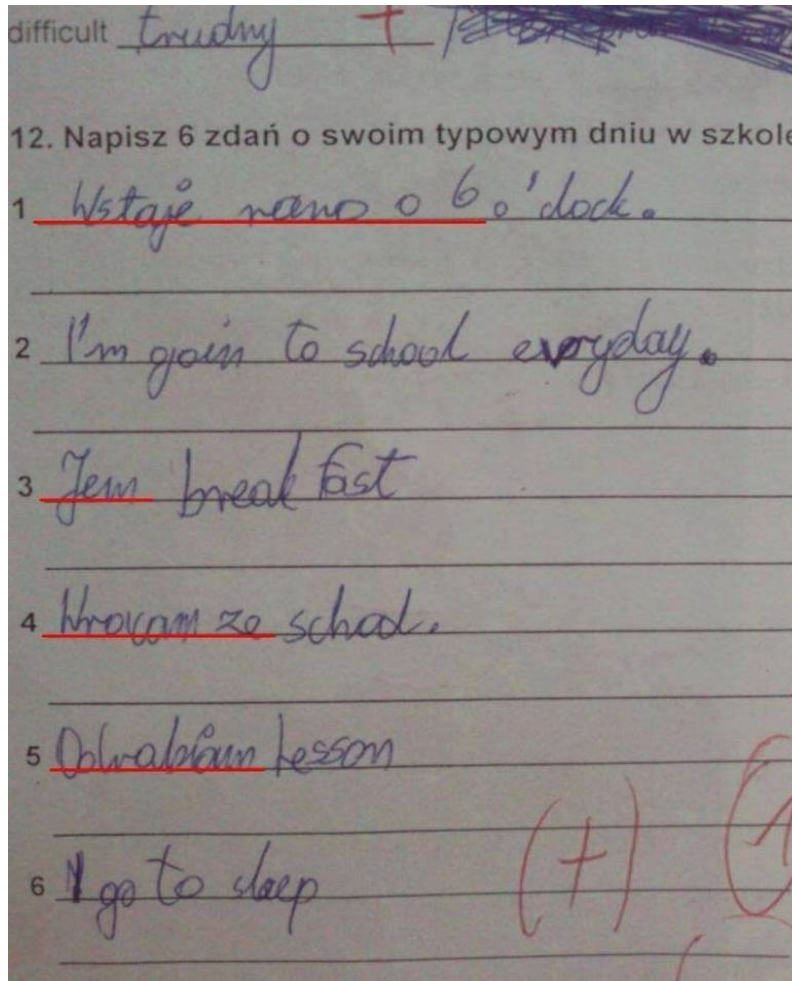 difficult trudny +
12. Napisz 6 zdań o swoim typowym dniu w szkole
1 Wstaje rano o 6 o'clock.
2 I'm goin to school everyday.
3 Jem breakfast
4 Wracam ze school.
5 Odrabiam Lesson
6 I go to sleep (+) 1